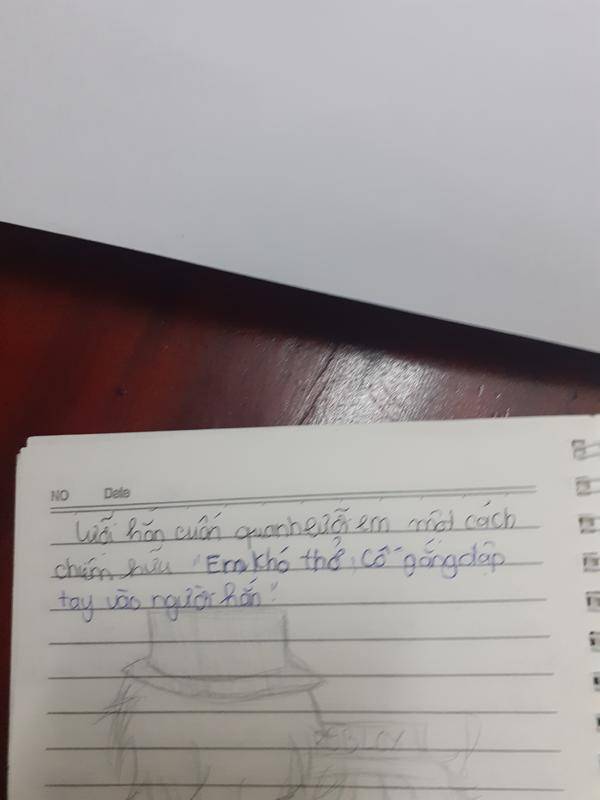 NO Date
lưỡi hắn cuốn quanh lưỡi em một cách
chiếm hữu "Em khó thở, cố gắng đập
tay vào người hắn"